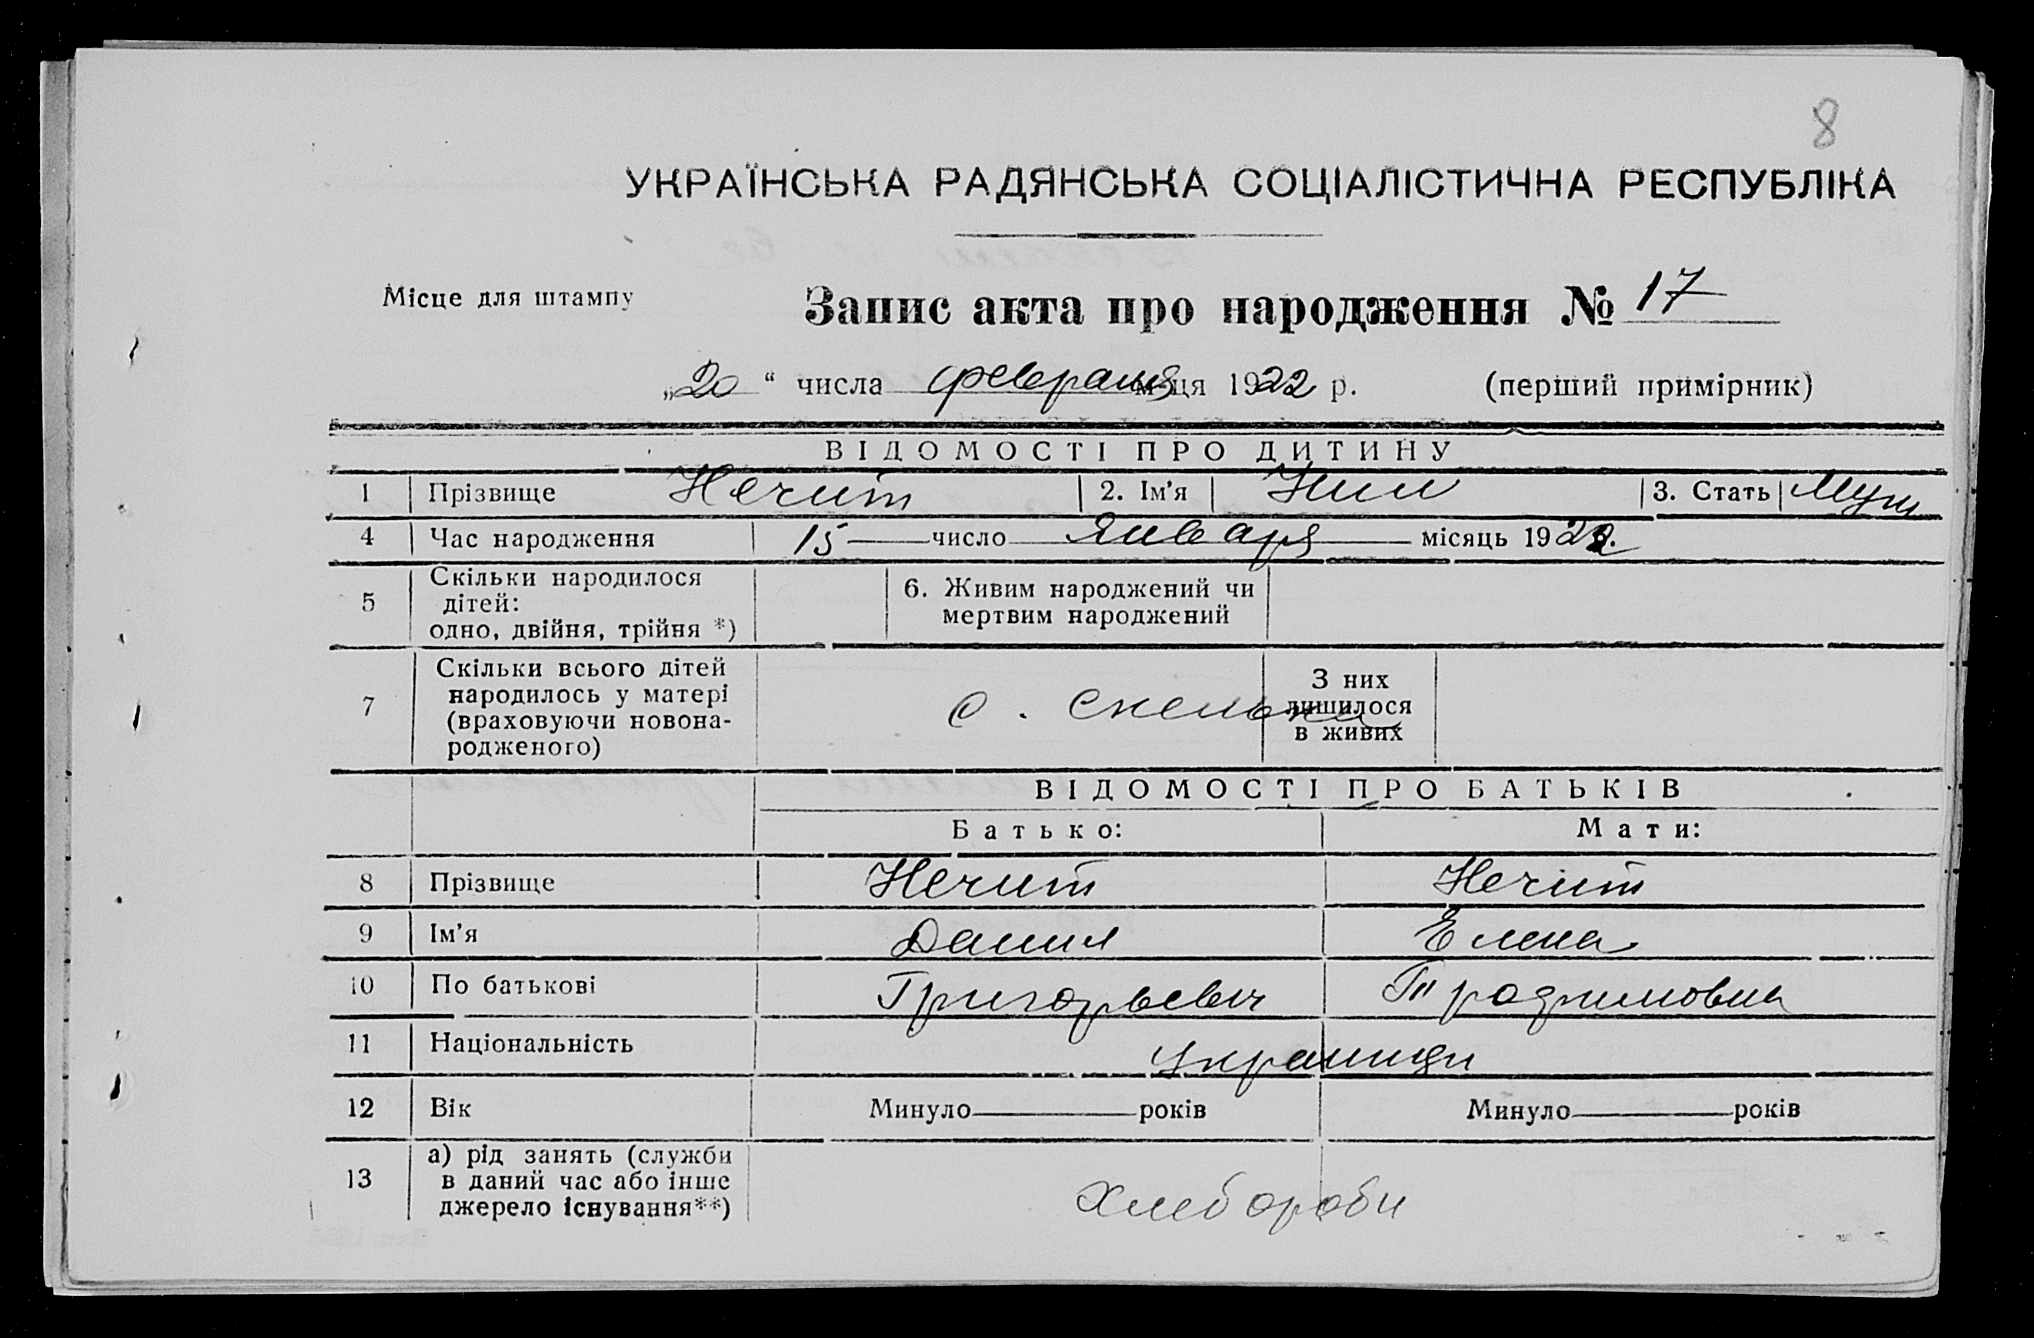 8
УКРАЇНСЬКА РАДЯНСЬКА СОЦІАЛІСТИЧНА РЕСПУБЛІКА
Місце для штампу
Запис акта про народження № 17
„20“ числа февраля м-ця 1922 р. (перший примірник)
ВІДОМОСТІ ПРО ДИТИНУ
1 Прізвище Нечит 2. Ім'я Нил 3. Стать Муж
4 Час народження 15 число Января місяць 1922 р.
5 Скільки народилося
дітей:
одно, двійня, трійня *)
6. Живим народжений чи
мертвим народжений
7 Скільки всього дітей
народилось у матері
(враховуючи новона-
родженого)
с. Скелька
З них
лишилося
в живих
ВІДОМОСТІ ПРО БАТЬКІВ
Батько: Мати:
8 Прізвище Нечит Нечит
9 Ім'я Данил Елена
10 По батькові Григорьевич
11 Національність Украинци
12 Вік Минуло років Минуло років
13 а) рід занять (служби
в даний час або інше
джерело існування**)
Хлебороби